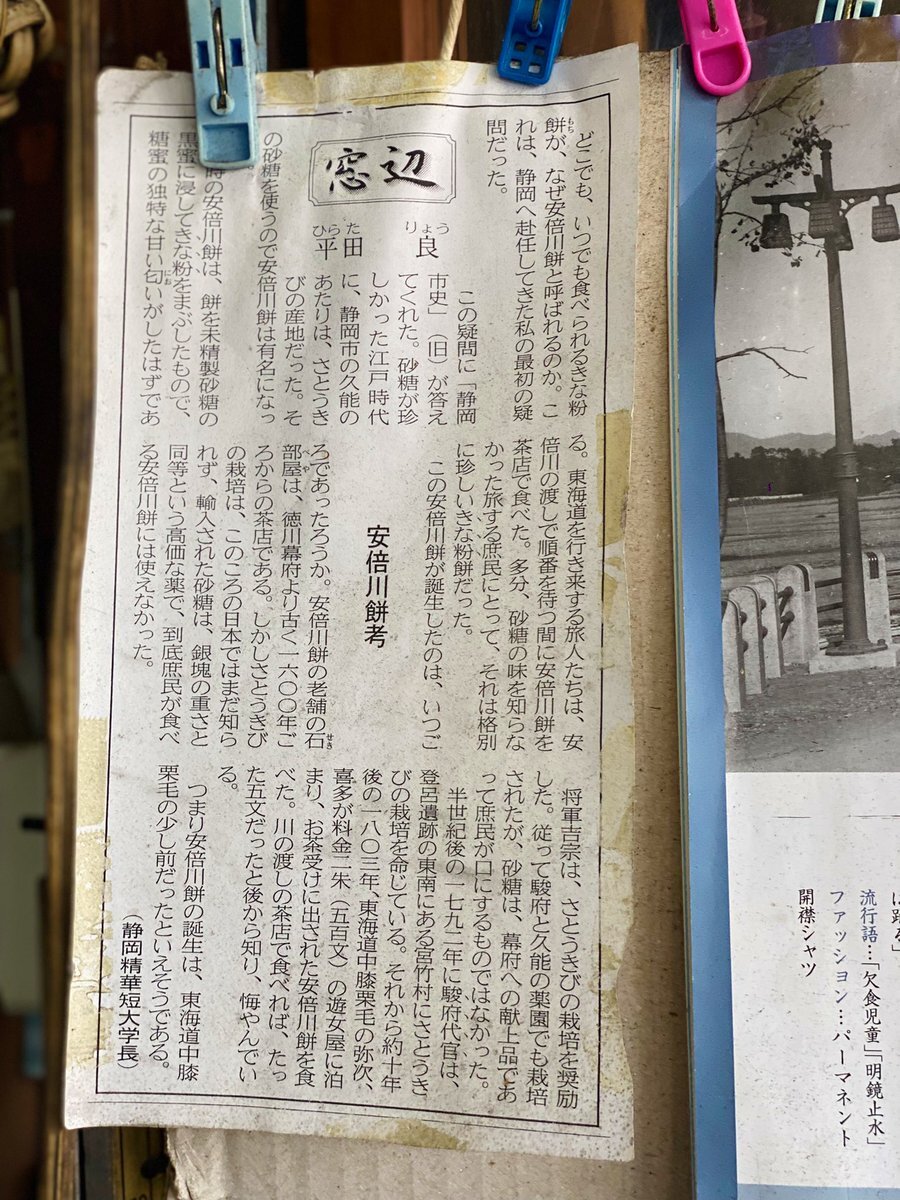 窓辺
平田　良
ひらた　りょう
安倍川餅考
どこでも、いつでも食べられるきな粉
餅が、なぜ安倍川餅と呼ばれるのか。こ
れは、静岡へ赴任してきた私の最初の疑
問だった。
この疑問に「静岡
市史」（旧）が答え
てくれた。砂糖が珍
しかった江戸時代
に、静岡市の久能の
あたりは、さとうき
びの産地だった。そ
の砂糖を使うので安倍川餅は有名になっ
時の安倍川餅は、餅を未精製砂糖の
黒蜜に浸してきな粉をまぶしたもので、
糖蜜の独特な甘い匂いがしたはずであ
る。東海道を行き来する旅人たちは、安
倍川の渡しで順番を待つ間に安倍川餅を
茶店で食べた。多分、砂糖の味を知らな
かった旅する庶民にとって、それは格別
に珍しいきな粉餅だった。
この安倍川餅が誕生したのは、いつご
ろであったろうか。安倍川餅の老舗の石
部屋は、徳川幕府より古く一六〇〇年ご
ろからの茶店である。しかしさとうきび
の栽培は、このころの日本ではまだ知ら
れず、輸入された砂糖は、銀塊の重さと
同等という高価な薬で、到底庶民が食べ
る安倍川餅には使えなかった。
将軍吉宗は、さとうきびの栽培を奨励
した。従って駿府と久能の薬園でも栽培
されたが、砂糖は、幕府への献上品であ
って庶民が口にするものではなかった。
半世紀後の一七九二年に駿府代官は、
登呂遺跡の東南にある宮竹村にさとうき
びの栽培を命じている。それから約十年
後の一八〇三年、東海道中膝栗毛の弥次、
喜多が料金二朱（五百文）の遊女屋に泊
まり、お茶受けに出された安倍川餅を食
べた。川の渡しの茶店で食べれば、たっ
た五文だったと後から知り、悔やんでい
る。
つまり安倍川餅の誕生は、東海道中膝
栗毛の少し前だったといえそうである。
（静岡精華短大学長）
流行語…「欠食児童」「明鏡止水」
ファッション…パーマネント
開襟シャツ